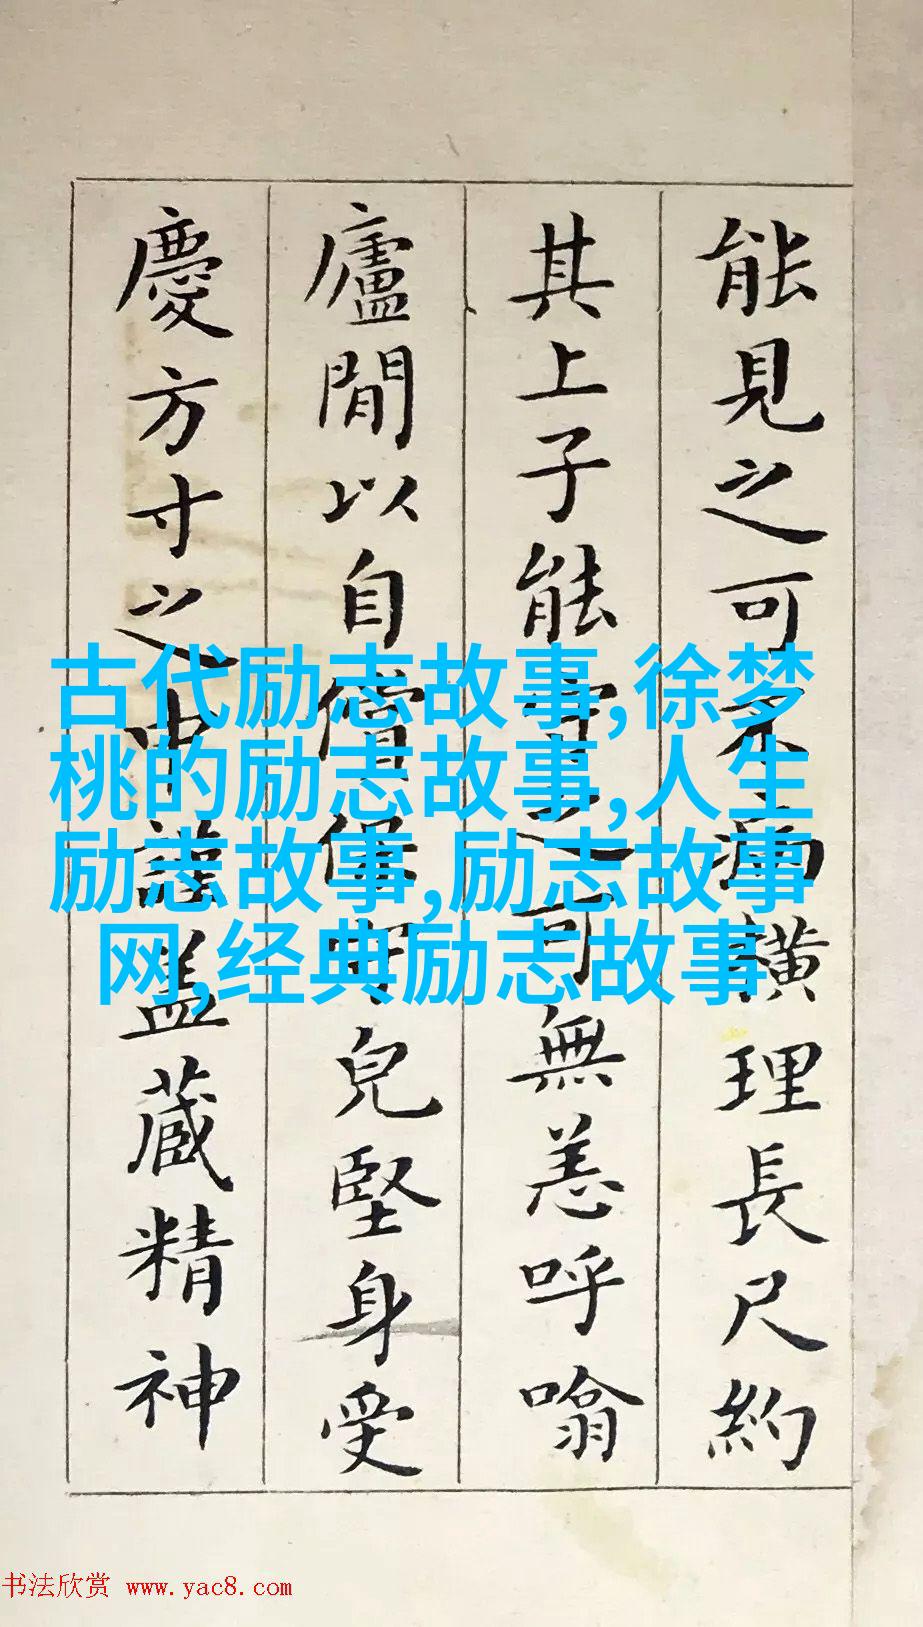 能見之可不病橫理長尺約
其上子能守之可無恙呼噏
廬閒以自償保守堅身受
慶方寸之中謹盖藏精神
古代励志故事,徐梦
桃的励志故事,人生
励志故事,励志故事
网,经典励志故事
书法欣赏 www.yac8.com